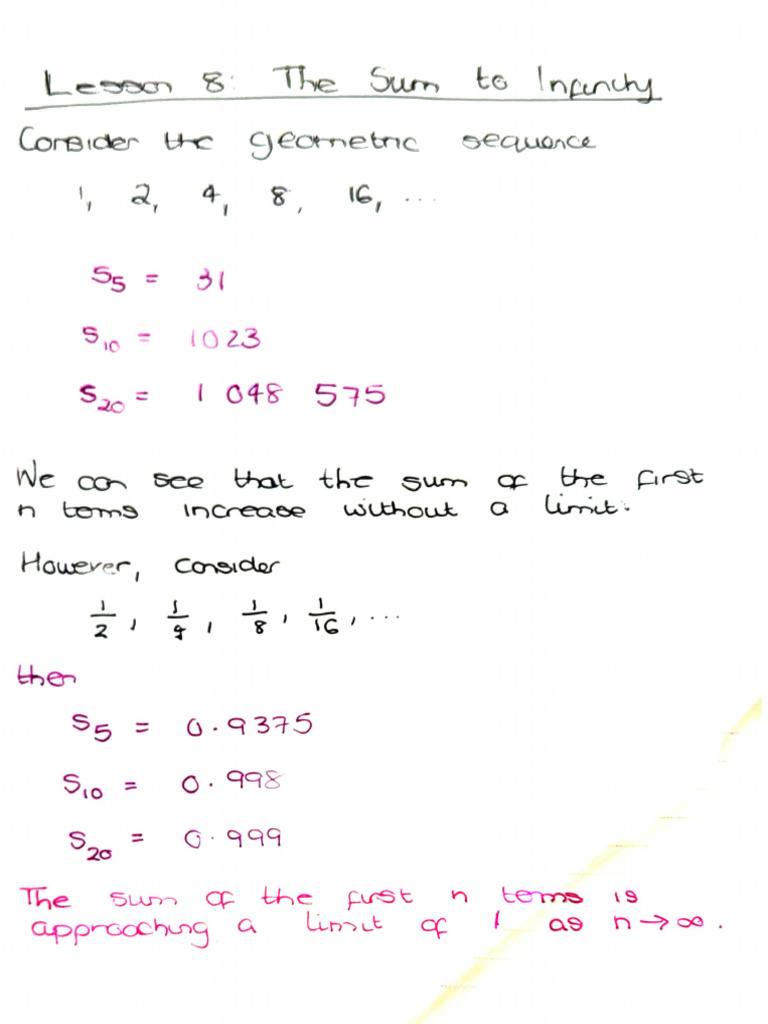 Lesson 8: The Sum to Infinity
Consider the geometric sequence
1, 2, 4, 8, 16, ...
S₅ = 31
S₁₀ = 1023
S₂₀ = 1 048 575
We can see that the sum of the first
n terms increase without a limit.
However, consider
1/2, 1/4, 1/8, 1/16, ...
then
S₅ = 0.9375
S₁₀ = 0.998
S₂₀ = 0.999
The sum of the first n terms is
approaching a limit of 1 as n → ∞.